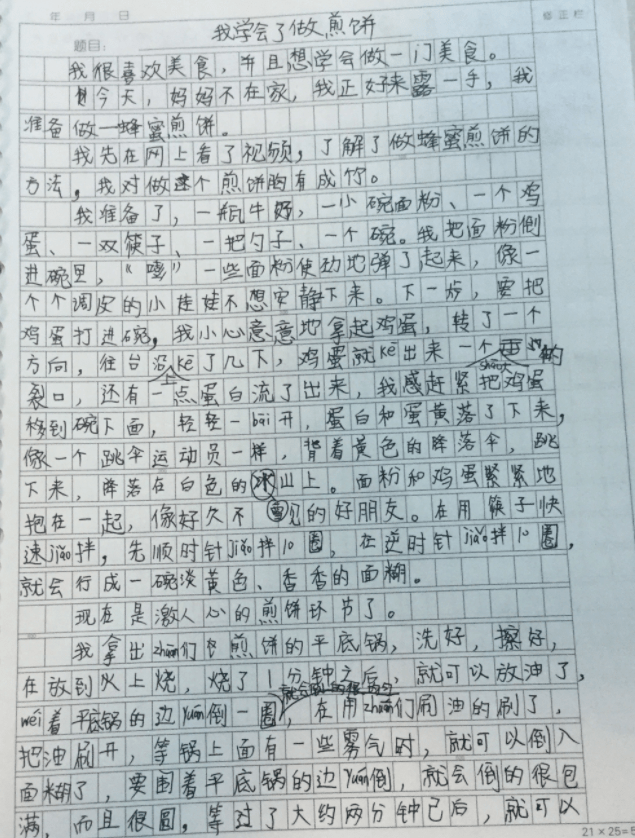 年 月 日
修正栏
题目: 我学会了做煎饼
我很喜欢美食,并且想学会做一门美食。
今天,妈妈不在家,我正好来露一手,我
准备做一蜂蜜煎饼。
我先在网上看了视频,了解了做蜂蜜煎饼的
方法,我对做这个煎饼胸有成竹。
我准备了,一瓶牛奶,一小碗面粉、一个鸡
蛋、一双筷子、一把勺子、一个碗。我把面粉倒
进碗里,“嘭”一些面粉使劲地弹了起来,像一
个个调皮的小娃娃不想安静下来。下一步,要把
鸡蛋打进碗,我小心意意地拿起鸡蛋,转了一个
方向,往台沿上kē了几下,鸡蛋就kē出来一个的
裂口,还有一点蛋白流了出来,我感赶紧把鸡蛋
移到碗下面,轻轻一bāi开,蛋白和蛋黄落了下来,
像一个跳伞运动员一样,背着黄色的降落伞,跳
下来,降落在白色的冰山上。面粉和鸡蛋紧紧地
抱在一起,像好久不见的好朋友。在用筷子快
速jiǎo拌,先顺时针jiǎo拌10圈,在逆时针jiǎo拌10圈,
就会行成一碗淡黄色、香香的面糊。
现在是激人心的煎饼环节了。
我拿出zhuān们煎饼的平底锅,洗好,擦好,
在放到火上烧,烧了1分钟之后,就可以放油了,
wéi着平底锅的边yuán倒一圈,在用zhuān们刷油的刷了,
把油刷开,等锅上面有一些雾气时,就可以倒入
面糊了,要围着平底锅的边yuán倒,就会倒的很包
满,而且很圆,等过了大约两分钟已后,就可以
21×25=5